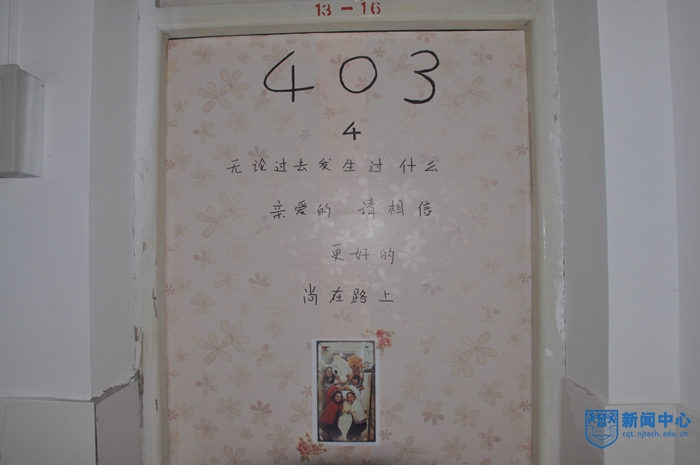 13-16
403
4
无论过去发生过什么
亲爱的 请相信
更好的
尚在路上
新闻中心
cqt.njtech.edu.cn